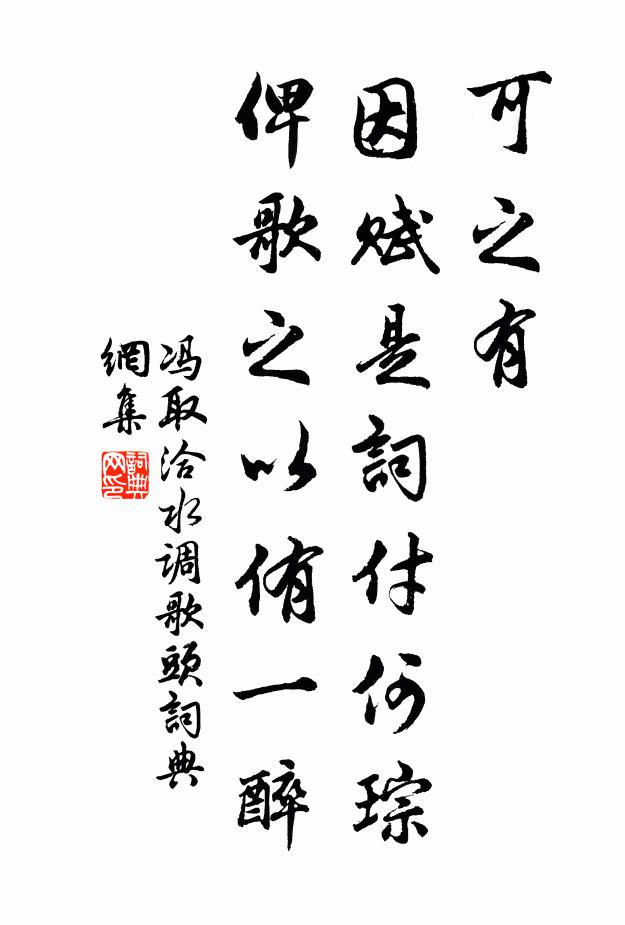 可之有
因赋是詞付何琮
俾歌之以侑一醉
冯取洽水调歌頭詞典
網集
詞典
网印